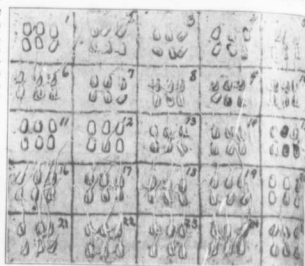 1 2 3
6 7 8 9
11 12 13 14
16 17 18 19
21 22 23 24